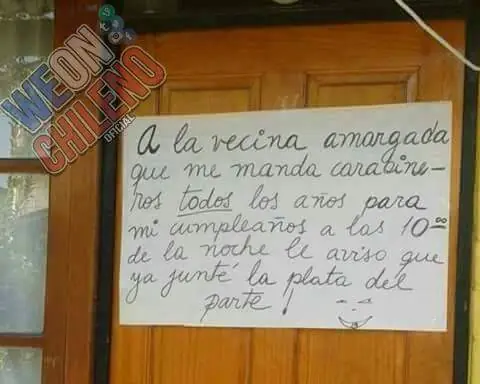 WEON
CHILENO
OFICIAL
A la vecina amargada
que me manda carabine-
ros todos los años para
mi cumpleaños a las 10:00
de la noche le aviso que
ya junté la plata del
parte!